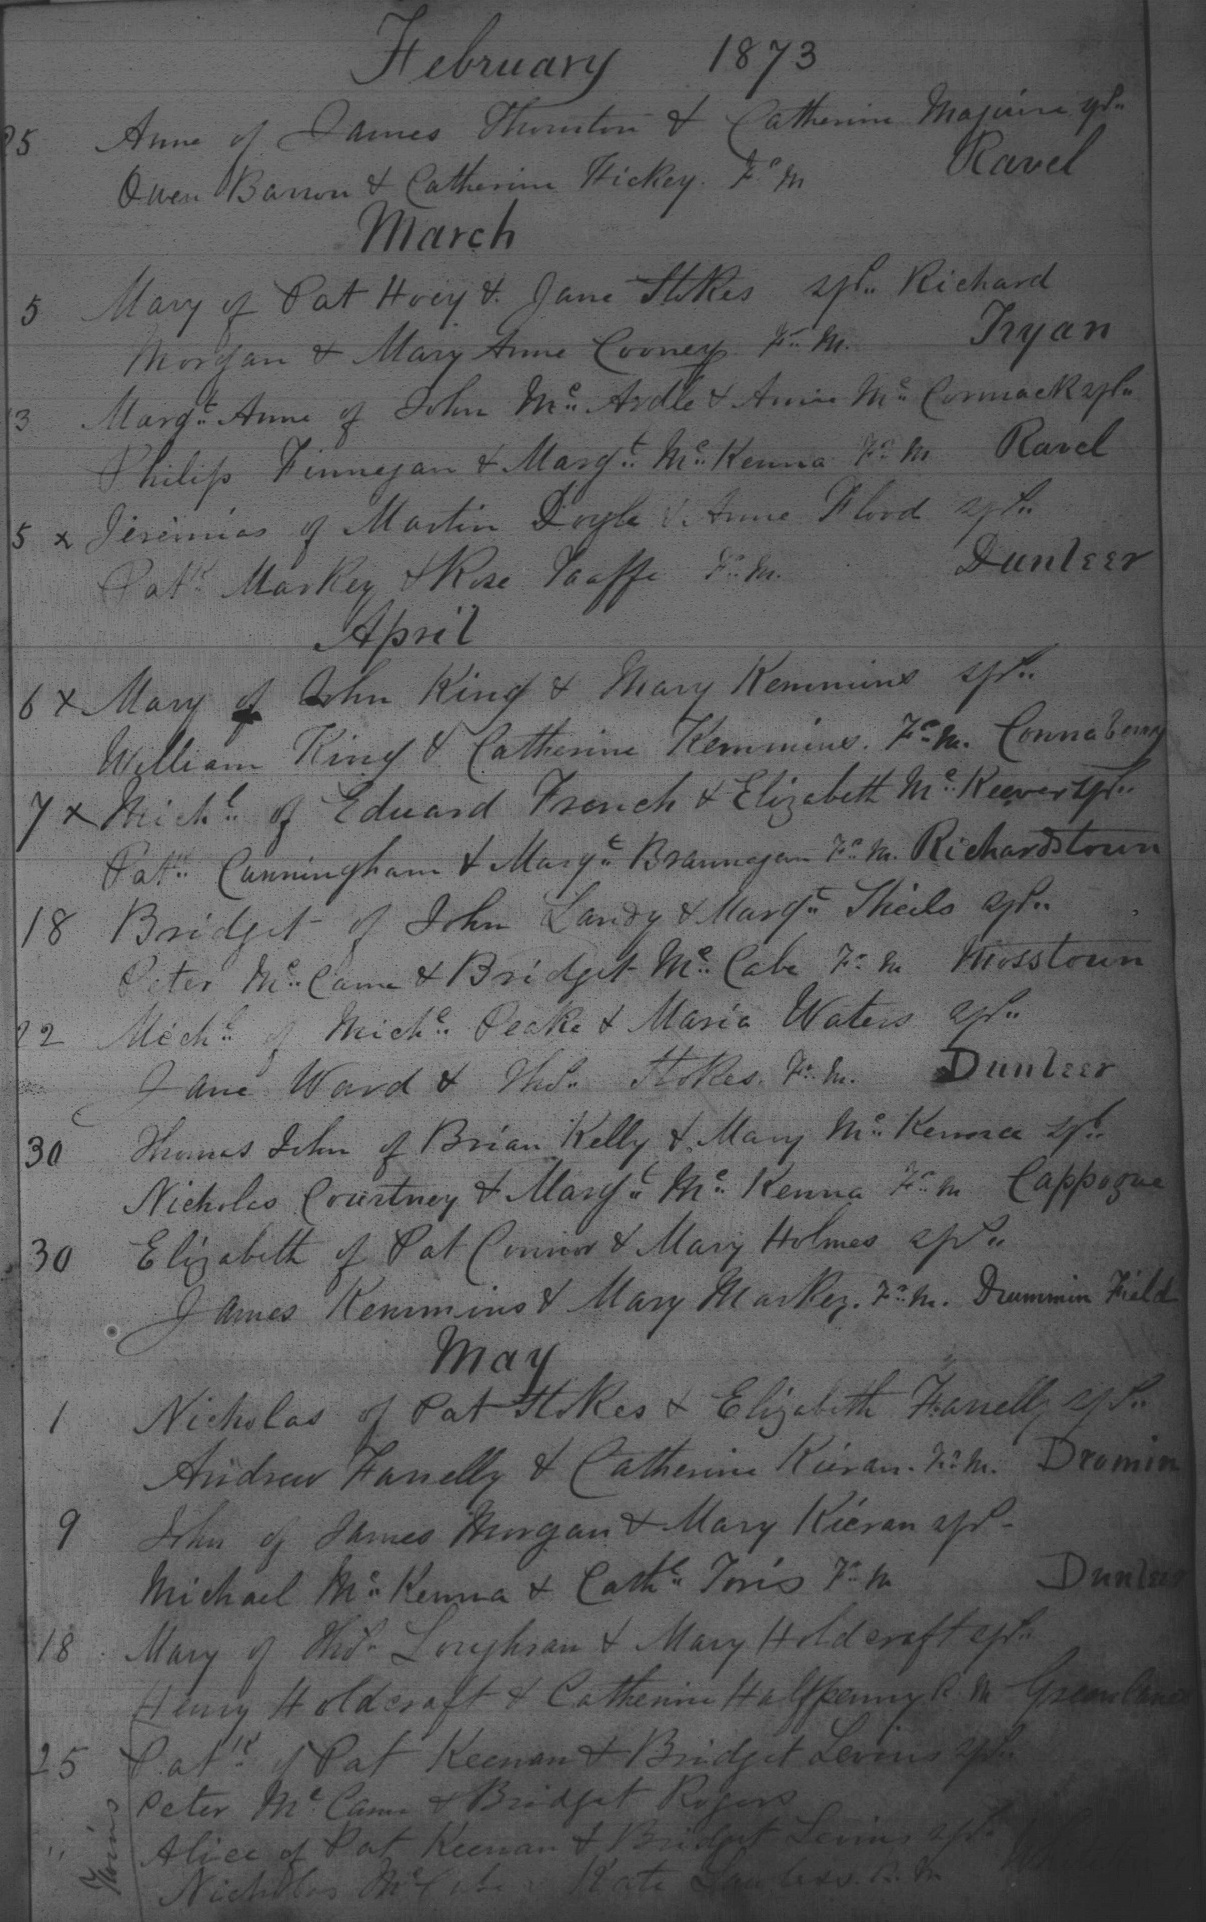 February 1873
25 Anne of James Thornton & Catherine Maguire spr..
Owen Barron & Catherine Hickey. Fr. M Ravel
March
5 Mary of Pat Hoey &. Jane Stokes spr.. Richard
Morgan & Mary Anne Cooney Fr.. M. Tryan
13 Margt.. Anne of John Mc.. Ardle & Annie Mc Cormack spr..
Philip Finnegan & Margt.. Mc.. Kenna Fr. M Ravel
5 x Jeremias of Martin Doyle & Anne Flood spr..
Patk.. Markey & Rose Taaffe Fr.. M. Dunleer
April
6 x Mary of John King & Mary Kemmins spr..
William King & Catherine Kemmins. Fr. M.
7 x Michl.. of Edward French & Elizabeth Mc. Keever spr..
Patk.. Cunningham & Margt. Brannagan Fr. M. Richardstown
18 Bridget of John Landy & Margt.. Sheils spr..
Peter Mc.. Came & Bridget Mc.. Cabe Fr. M Mosstown
22 Michl.. of Michl.. Peake & Maria Waters spr..
Jane Ward & Thos. Stokes. Fr. M. Dunleer
30 Thomas John of Brian Kelly & Mary Mc.. Kenna spr..
Nicholas Courtney & Margt.. Mc.. Kenna Fr.. M Cappogue
30 Elizabeth of Pat Connor & Mary Holmes spr..
James Kemmins & Mary Markey. Fr. M. Drummin Field
May
1 Nicholas of Pat Stokes & Elizabeth Farrelly spr..
Andrew Farrelly & Catherine Kieran. Fr. M. Dromin
9 John of James Morgan & Mary Kieran spr.
Michael Mc.. Kenna & Cathe.. Toris Fr. M Dunleer
18 Mary of Thos. Loughran & Mary Holdcraft spr..
Henry Holdcraft & Catherine Halfpenny R. M Greenlane
25 Patk.. of Pat Keenan & Bridget Levins spr..
Peter Mc. Came & Bridget Rogers
" Alice of Pat Keenan & Bridget Levins spr..
Nicholas McCabe Kate Lawless R. M
Twins